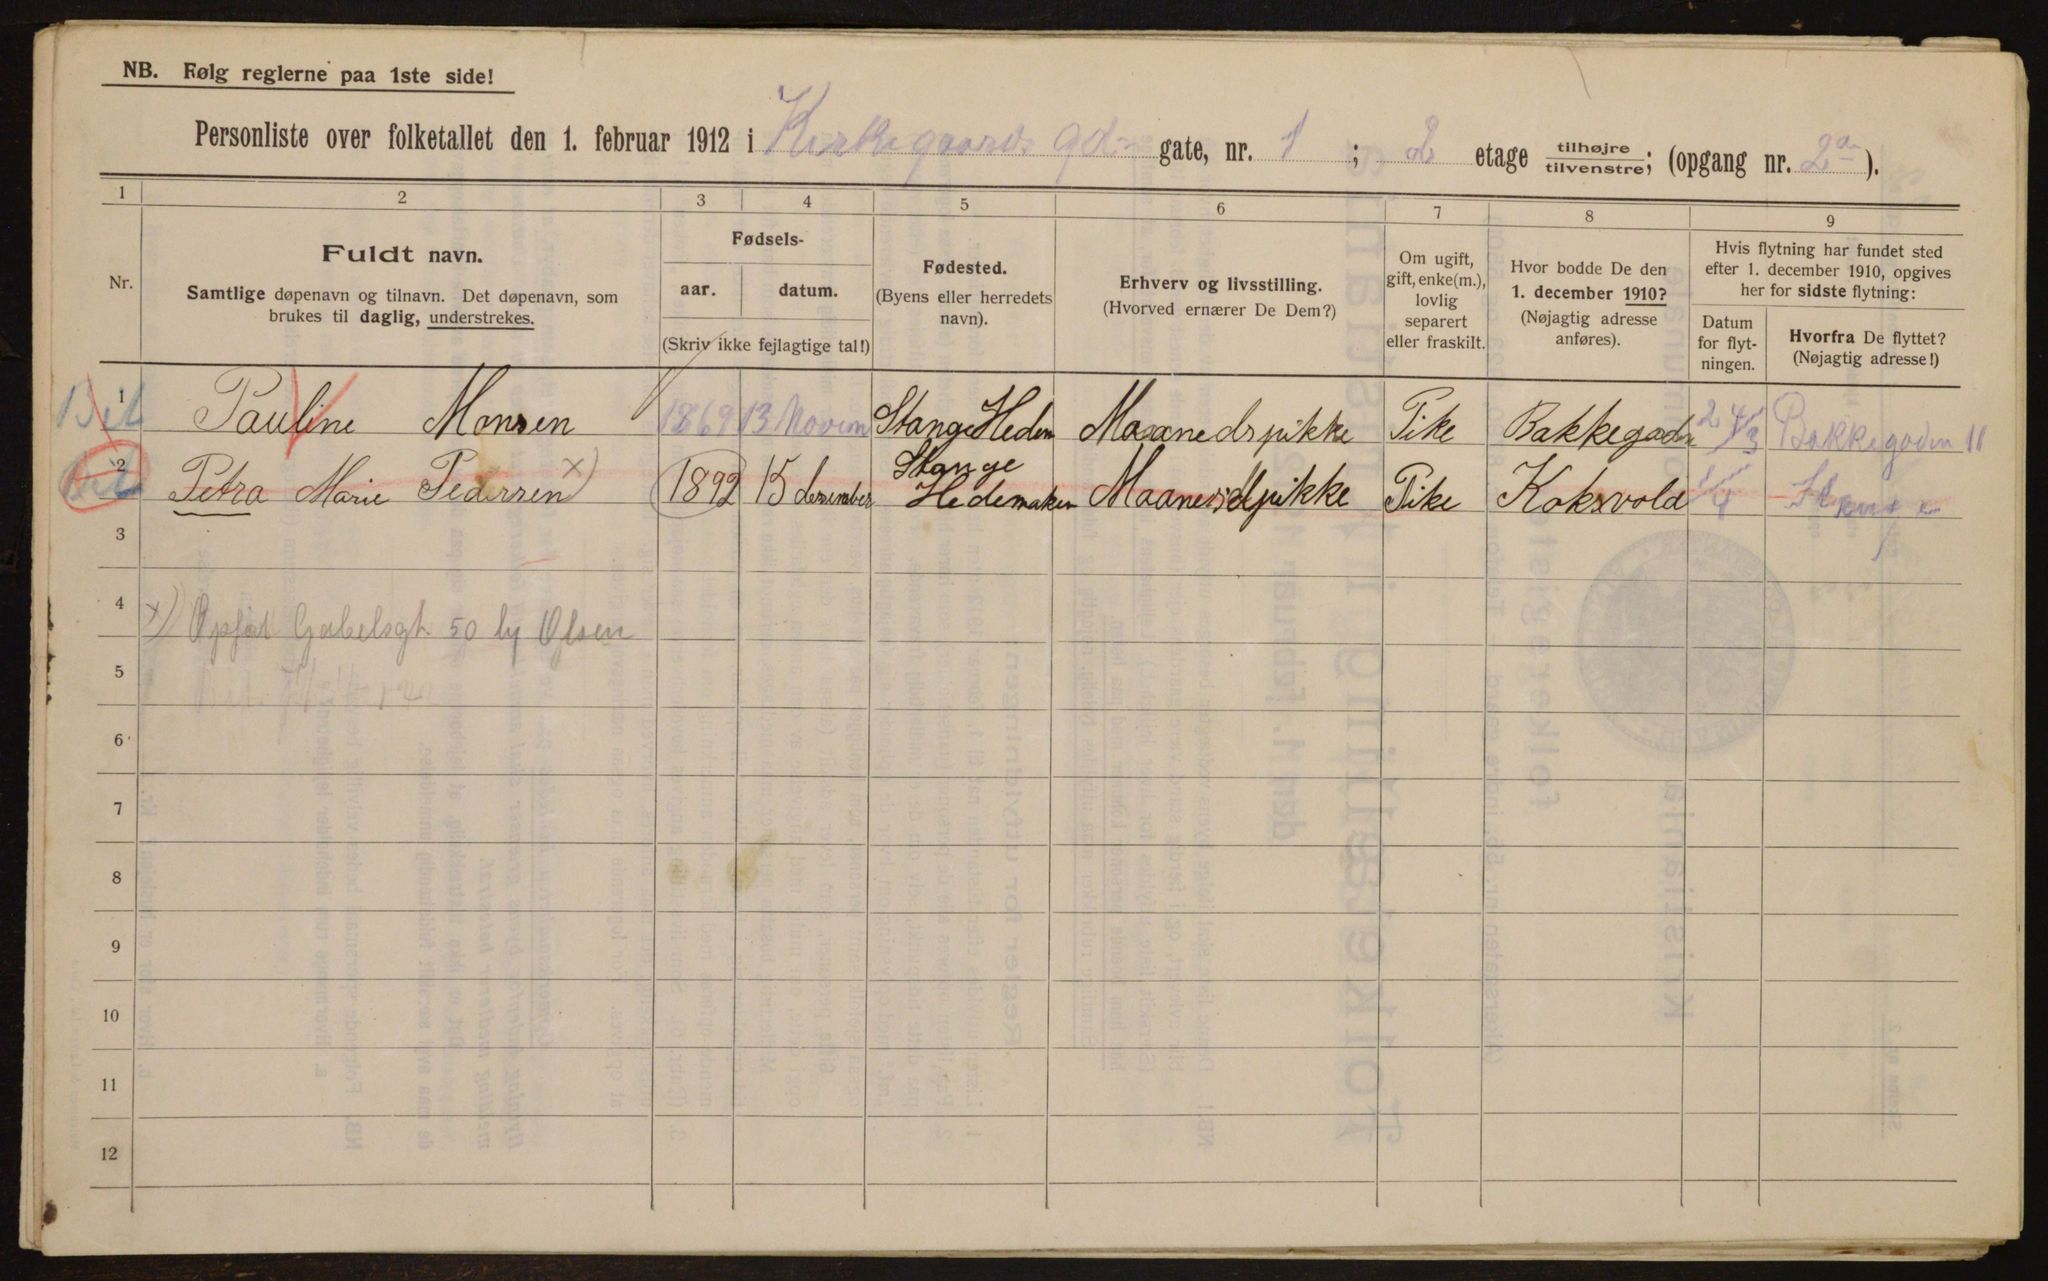 NB. Følg reglerne paa 1ste side!
Personliste over folketallet den 1. februar 1912 i Kirkegaards gdn gate, nr. 1 ; 2 etage tilhøjre/tilvenstre; (opgang nr. 2a ).
1 2 3 4 5 6 7 8 9
Nr.
Fuldt navn.
Samtlige døpenavn og tilnavn. Det døpenavn, som
brukes til daglig, understrekes.
Fødsels-
aar. datum.
(Skriv ikke fejlagtige tal!)
Fødested.
(Byens eller herredets
navn).
Erhverv og livsstilling.
(Hvorved ernærer De Dem?)
Om ugift,
gift, enke(m.),
lovlig
separert
eller fraskilt.
Hvor bodde De den
1. december 1910?
(Nøjagtig adresse
anføres).
Hvis flytning har fundet sted
efter 1. december 1910, opgives
her for sidste flytning:
Datum
for flyt-
ningen.
Hvorfra De flyttet?
(Nøjagtig adresse!)
1 Pauline Monsen 1869 13 Novem Stange Hedm Maanedspikke Pike Bakkegadn Bakkegaden 11
2 Petra Marie Pedersen x) 1892 15 desember Stange Hedemaken Maanedspikke Pike Koksvold
3
4
x) Opført Gabelsgt 50 by Olsen
5
6
7
8
9
10
11
12